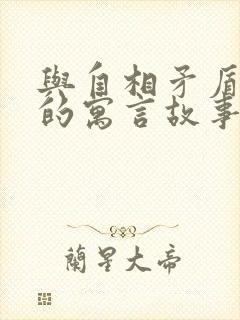 與自相矛盾
的寓言故事
蘭星大帝